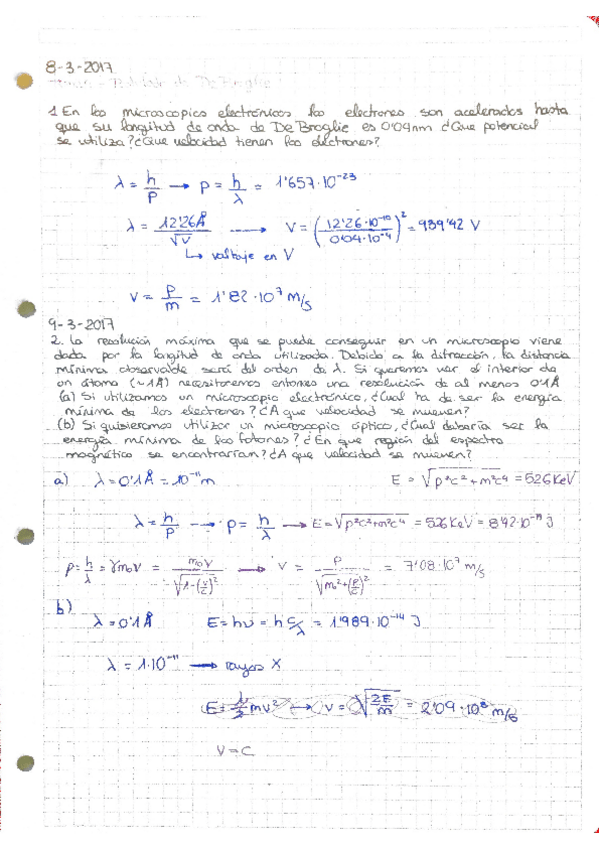 8-3-2017
1. En los microscopios electrónicos los electrones son acelerados hasta
que su longitud de onda de De Broglie es 0'04nm ¿Que potencial
se utiliza? ¿Que velocidad tienen los electrones?
λ = h/p → p = h/λ = 1'657·10^-23
λ = 12'26Å/√V → V = (12'26·10^-10/0'04·10^-9)^2 = 939'42 V
↳ voltaje en V
V = p/m = 1'82·10^7 m/s
9-3-2017
2. La resolución máxima que se puede conseguir en un microscopio viene
dada por la longitud de onda utilizada. Debido a la difracción, la distancia
mínima observable será del orden de λ. Si queremos ver el interior de
un átomo (~1Å) necesitaremos entonces una resolución de al menos 0'1Å
(a) Si utilizamos un microscopio electrónico, ¿Cual ha de ser la energía
mínima de los electrones? ¿A que velocidad se mueven?
(b) Si quisieramos utilizar un microscopio óptico, ¿Cual debería ser la
energía mínima de los fotones? ¿En que región del espectro
magnético se encontrarían? ¿A que velocidad se mueven?
a) λ = 0'1Å = 10^-11 m E = √p²c² + m²c⁴ = 526 KeV
λ = h/p → p = h/λ → E = √p²c²+m²c⁴ = 526 KeV = 8'42·10^-14 J
p = h/λ = γm₀v = m₀v/√1-(v/c)² → V = p/√m₀²+(p/c)² = 7'08·10^7 m/s
b)
λ = 0'1Å E = hν = h c/λ = 1'989·10^-14 J
λ = 1·10^-11 → rayos X
E = 1/2 mv² → v = √2E/m = 2'09·10^8 m/s
V = C